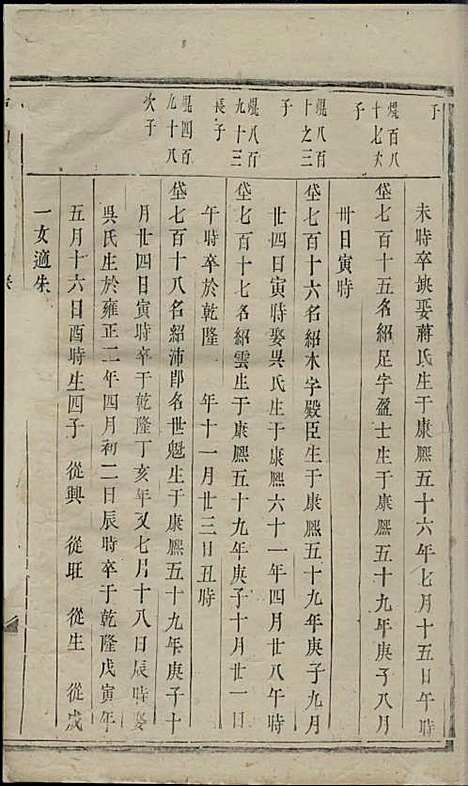 子
未時卒娶蔣氏生于康熙五十六年七月十五日午時
焜百八
十七大
子
垈七百十五名紹足字盈士生于康熙五十九年庚子八月
卅日寅時
焜八百
十之三
子
垈七百十六名紹木字殿臣生于康熙五十九年庚子九月
廿四日寅時娶吳氏生于康熙六十一年四月廿八午時
焜八百
九十三
長子
垈七百十七名紹雲生于康熙五十九年庚子十月廿一日
午時卒於乾隆 年十一月廿三日丑時
焜四百
九十八
次子
垈七百十八名紹沛即名世魁生于康熙五十九年庚子十
月廿四日寅時卒于乾隆丁亥年又七月十八日辰時娶
吳氏生於雍正二年四月初二日辰時卒于乾隆戊寅年
五月十六日酉時生四子 從興 從旺 從生 從成
一女適朱